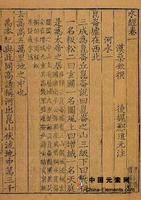 水經卷一
漢桑欽撰 後魏酈道元注
河水一
崑崙墟在西北
三成為崑崙丘崑崙說曰崑崙之山三級下
二曰玄圃一名閬風上曰
是為太帝之居
去嵩高五萬里地之中也
禹本紀與此同高誘稱河出崑山伏流地中萬三千
中國元素網
China-Elements.com